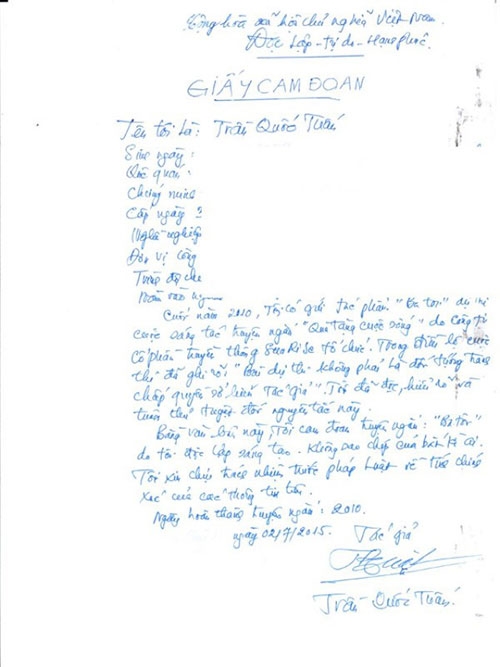 Cộng hòa xã hội chủ nghĩa Việt Nam.
Độc lập - tự do - Hạnh phúc.
GIẤY CAM ĐOAN
Tên tôi là: Trần Quốc Tuấn
Sinh ngày:
Quê quán:
Chứng minh
Cấp ngày 3
Nghề nghiệp
Đơn vị công
Trình độ
Cuối năm 2010, Tôi có gửi tác phẩm "Bê tôi" dự thi
cuộc sáng tác truyện ngắn "Quà tặng cuộc sống" do Công ty
cổ phần truyền thông SunRiSe tổ chức. Trong điều lệ cuộc
thi đã ghi rõ "Bài dự thi không phải là đối tượng tranh
chấp quyền sở hữu Tác giả". Tôi đã đọc, hiểu rõ và
tuân thủ tuyệt đối nguyên tắc này.
Bằng văn bản này, Tôi cam đoan truyện ngắn: "Bê tôi"
do tôi độc lập sáng tạo. Không sao chép của bất kì ai.
Tôi xin chịu trách nhiệm trước pháp luật về tính chính
xác của các thông tin trên.
Ngày hoàn thành truyện ngắn: 2010.
ngày 02/7/2015. Tác giả
Trần Quốc Tuấn.